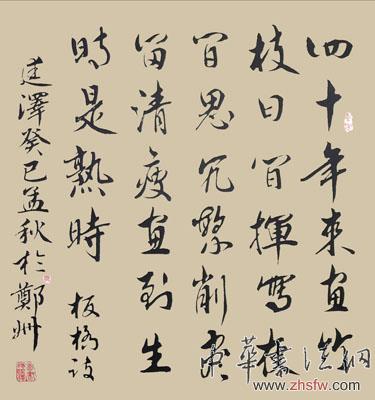 四十年來畫竹
枝日間揮寫夜
間思冗繁削盡
留清瘦畫到生
時是熟時 板橋詩
廷澤癸巳孟秋於鄭州
華書法網
www.zhsfw.com